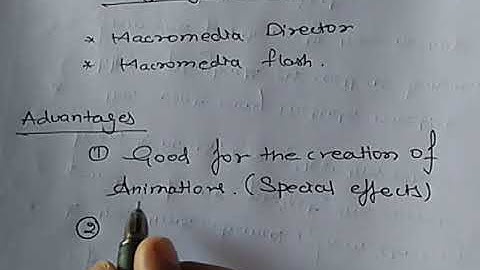 * Macromedia Director
* Macromedia flash.
Advantages
① Good for the creation of
Animations. (Special effects)
②